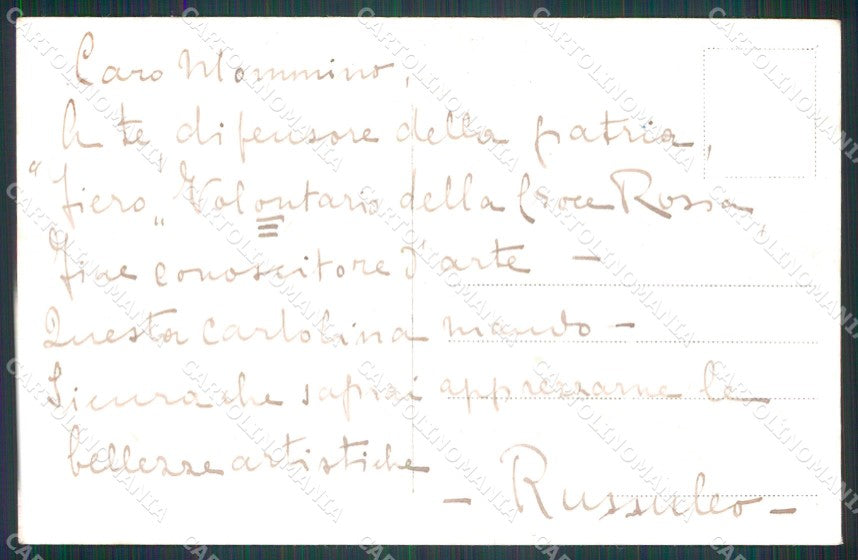 Caro Mommino,
A te, difensore della patria,
"fiero" Volontario della Croce Rossa,
Fine conoscitore d'arte -
Questa cartolina mando -
Sicura che saprai apprezzarne le
bellezze artistiche
- Russuleo -
CARTOLINOMANIA